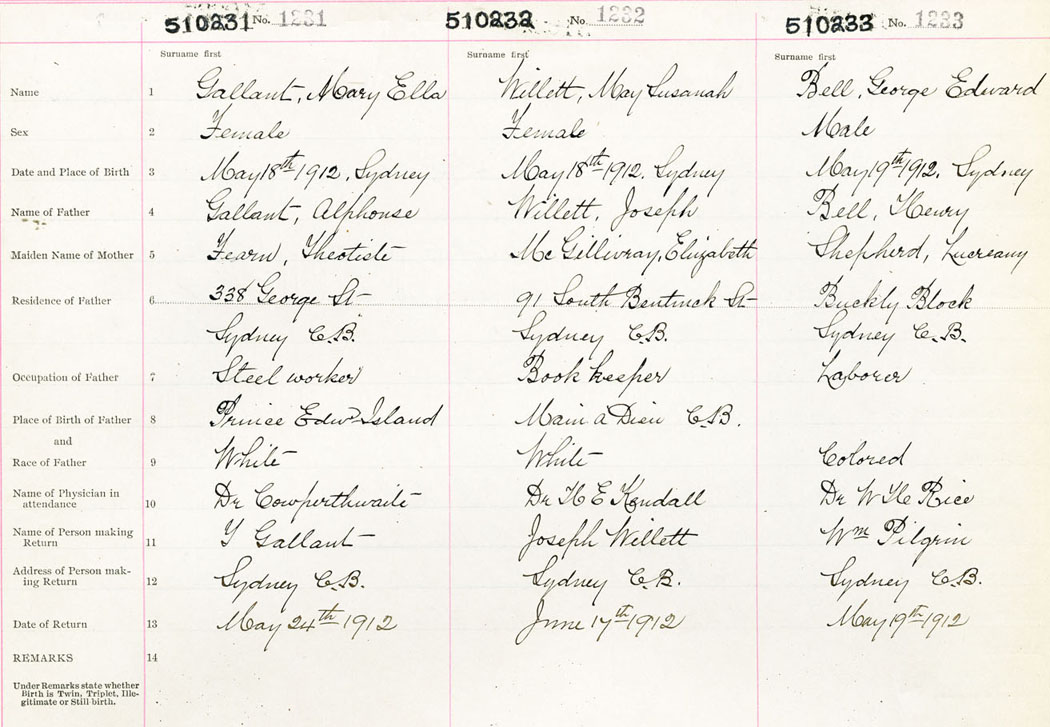 510231 No. 1231 510232 No. 1232 510233 No. 1233
Surname first Surname first Surname first
Name 1 Gallant, Mary Ella Willett, May Susanah Bell, George Edward
Sex 2 Female Female Male
Date and Place of Birth 3 May 18th 1912, Sydney May 18th 1912. Sydney May 19th 1912, Sydney
Name of Father 4 Gallant, Alphonse Willett, Joseph Bell, Henry
Maiden Name of Mother 5 Fearn, Theotiste Mc Gillivray, Elizabeth Shepherd, Lucreany
Residence of Father 6 338 George St 91 South Bentinck St Buckly Block
Sydney C.B. Sydney C.B. Sydney C.B.
Occupation of Father 7 Steel worker Book keeper Laborer
Place of Birth of Father 8 Prince Edwd Island Main a Dieu C.B.
and
Race of Father 9 White White Colored
Name of Physician in
attendance 10 Dr Cowperthwaite Dr H E Kendall Dr W H Rice
Name of Person making
Return 11 Y Gallant Joseph Willett Wm Pilgrin
Address of Person mak-
ing Return 12 Sydney C.B. Sydney C.B. Sydney C.B.
Date of Return 13 May 24th 1912 June 17th 1912 May 19th 1912
REMARKS 14
Under Remarks state whether
Birth is Twin, Triplet, Ille-
gitimate or Still birth.